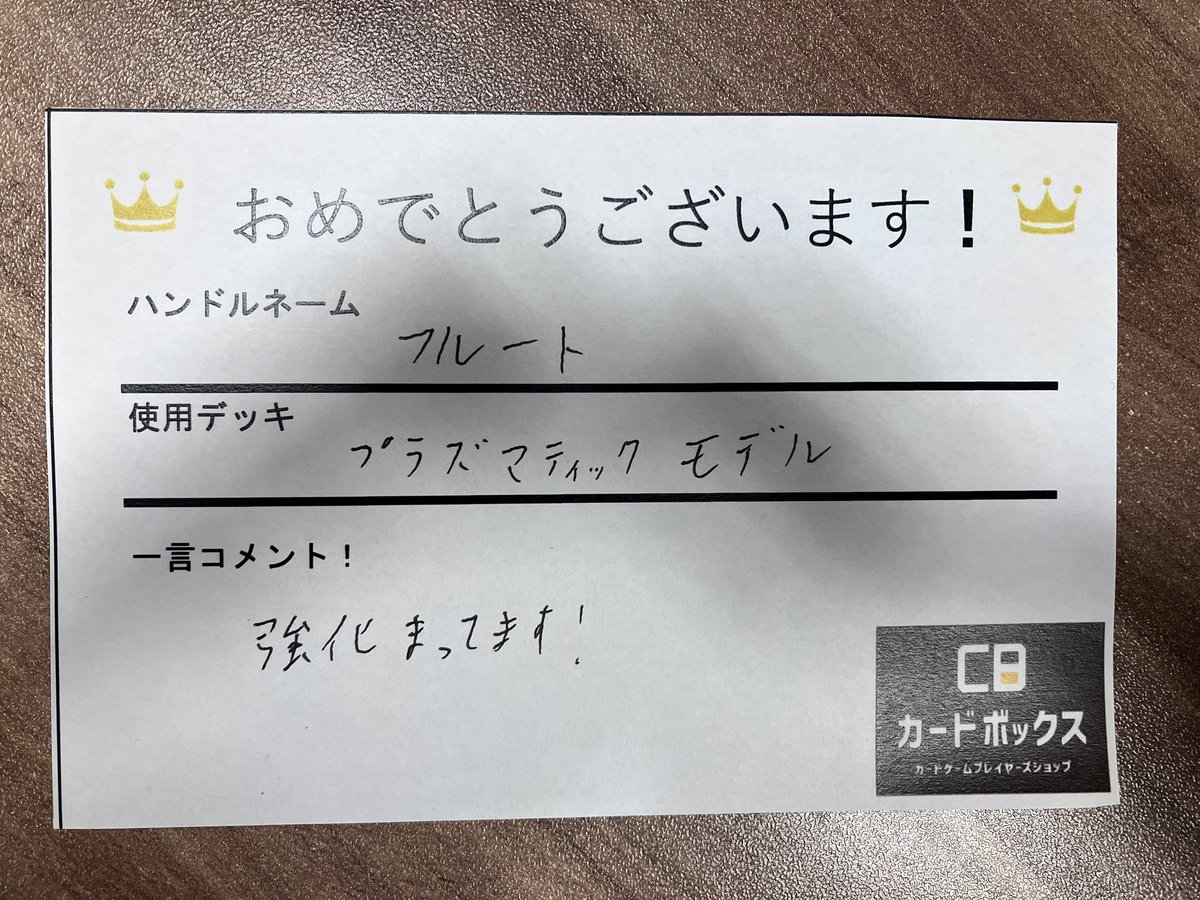 おめでとうございます！
ハンドルネーム
フルート
使用デッキ
プラズマティック モデル
一言コメント！
強化まってます！
CB
カードボックス
カードゲームプレイヤーズショップ